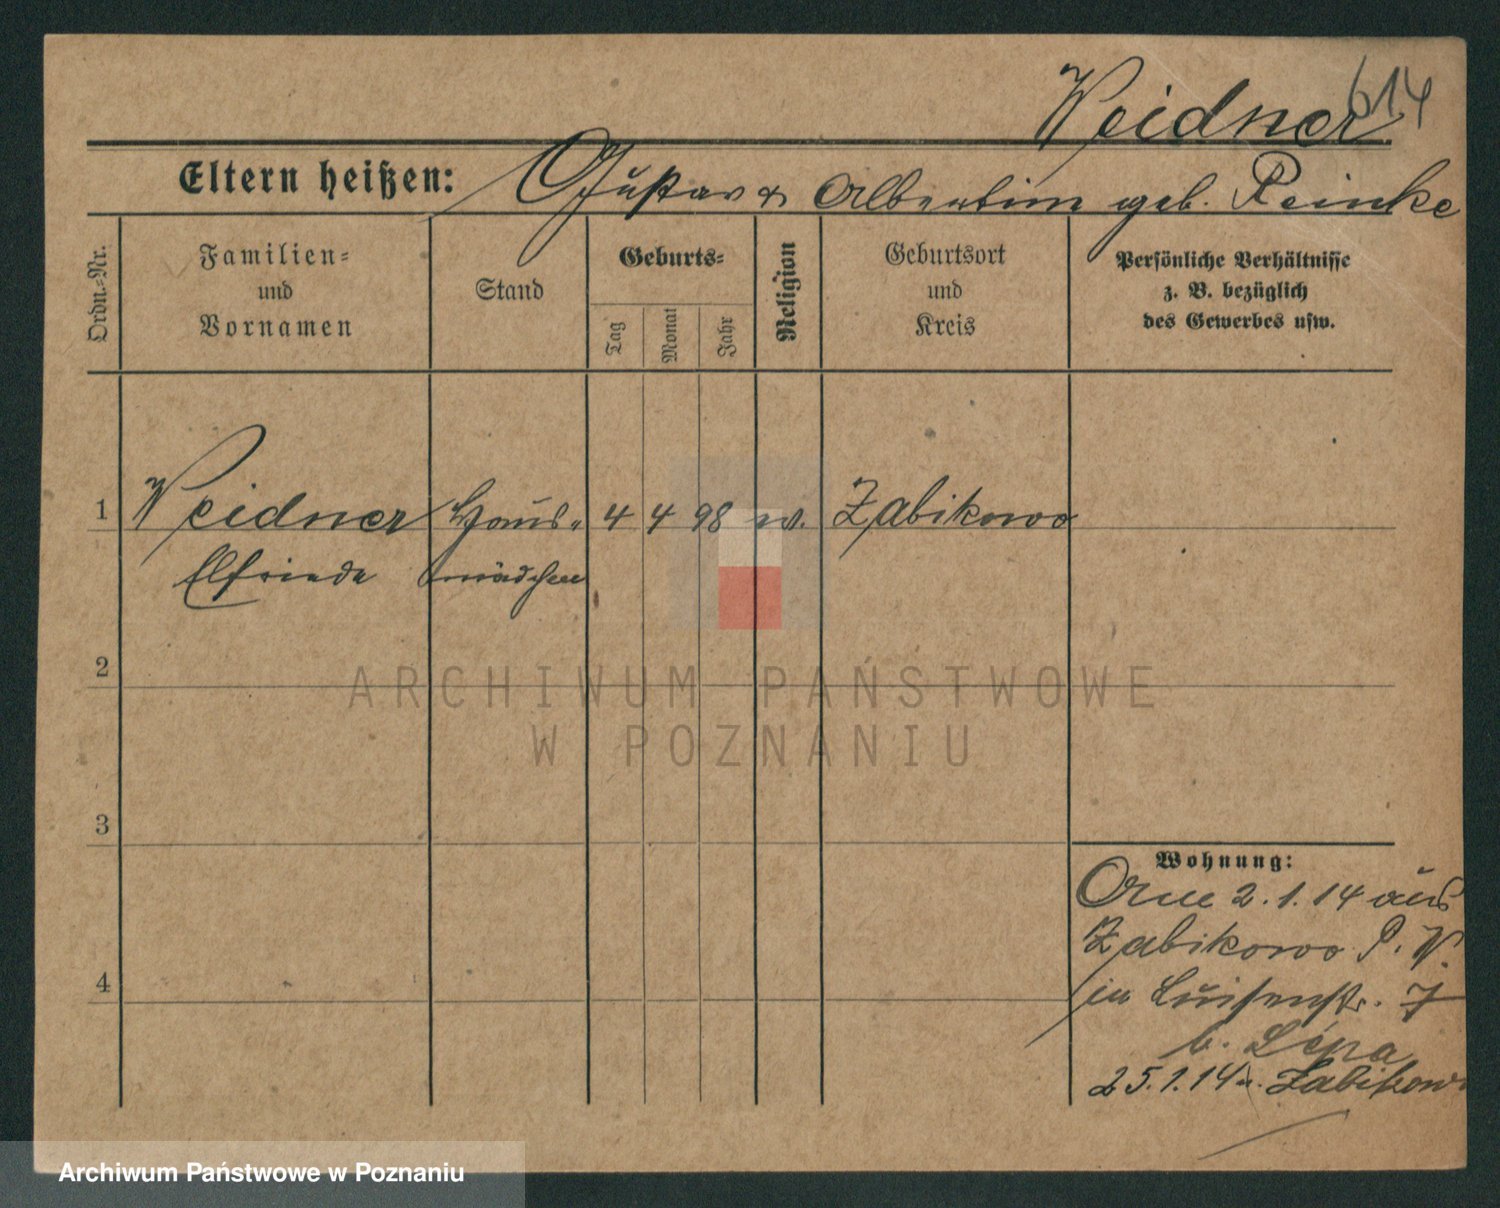 Weidner 614
Eltern heißen: Gustav & Albertine geb. Reinke
Ordn.-Nr.
Familien-
und
Vornamen
Stand
Geburts-
Tag
Monat
Jahr
Religion
Geburtsort
und
Kreis
Persönliche Verhältnisse
z. B. bezüglich
des Gewerbes usw.
1 Weidner Haus- 4 4 98 ev. Zabikowo
Elfriede mädchen
2
3
4
Wohnung:
2.1.14 aus
Zabikowo P. W.
in Luisenstr. 7
b. Lépa
25.1.14 n. Zabikowo
ARCHIWUM PAŃSTWOWE
W POZNANIU
Archiwum Państwowe w Poznaniu